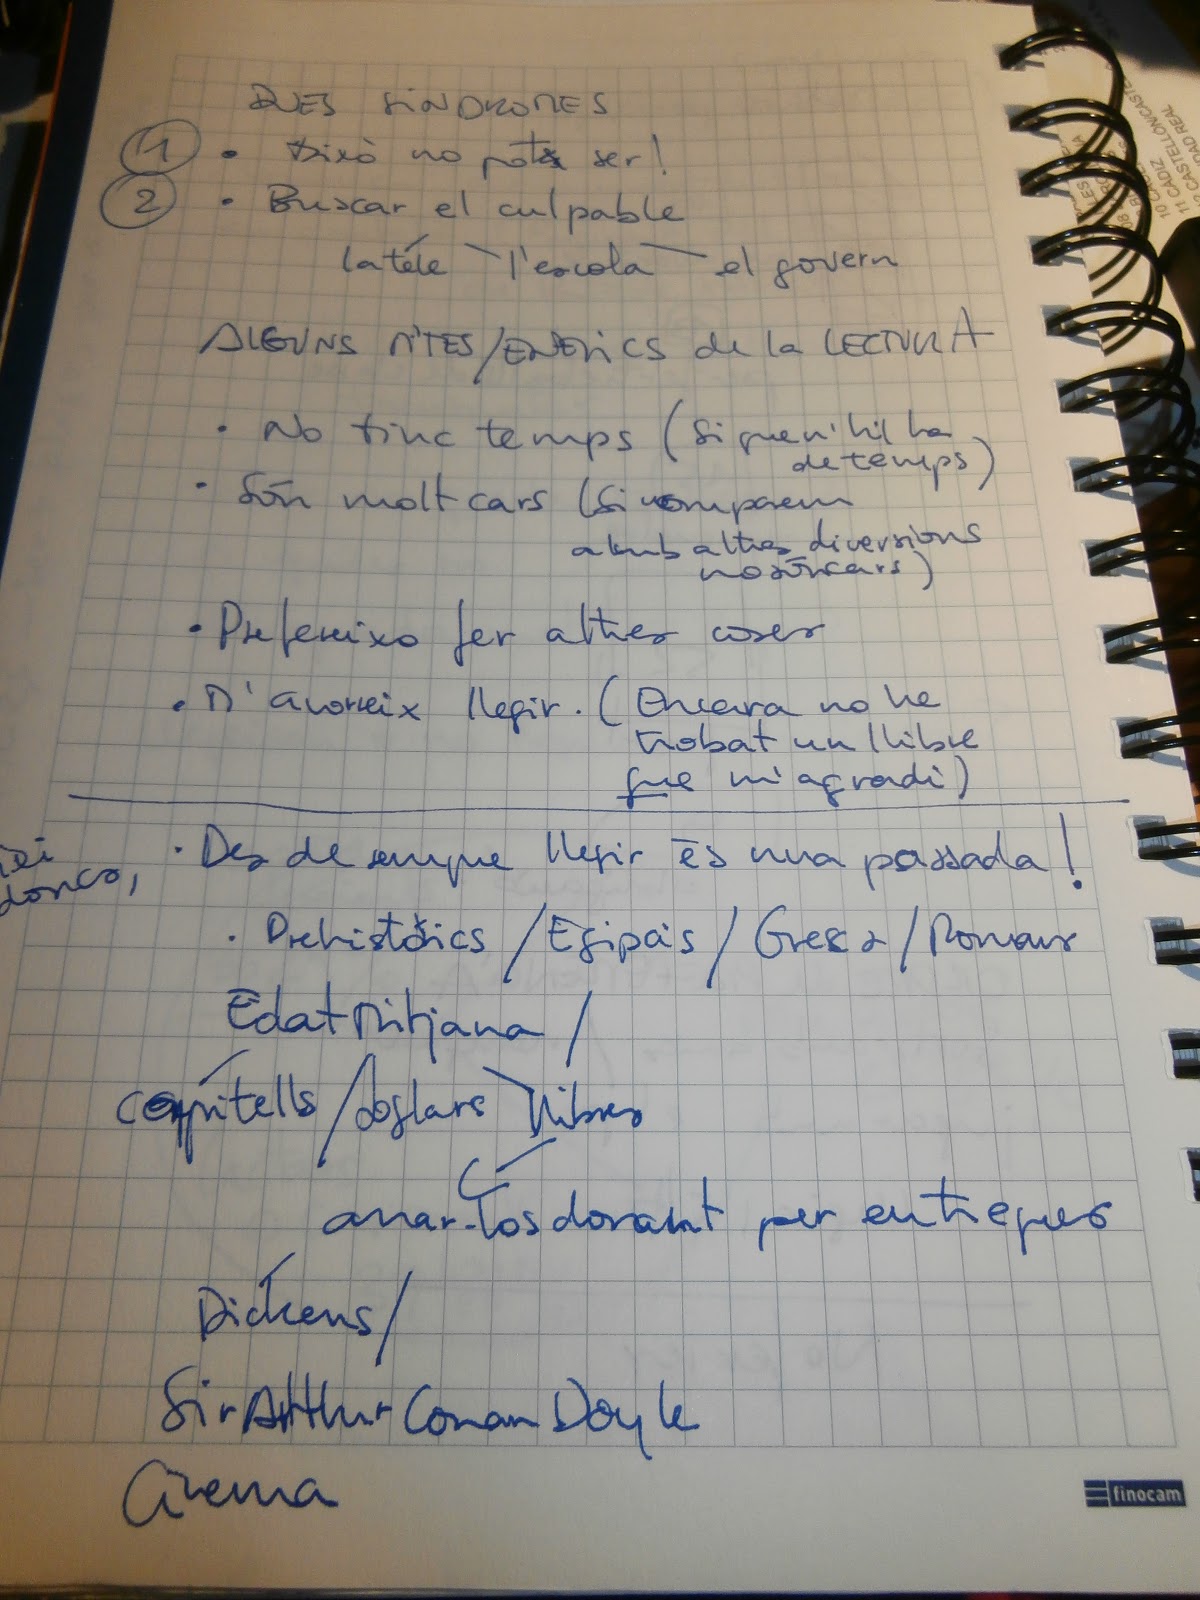 DUES SINDROMES
1 • Això no pot ser!
2 • Buscar el culpable
la tele l'escola el govern
ALGUNS MITES/ENEMICS de la LECTURA
• No tinc temps (Si que n'hi ha
de temps)
• Són molt cars (Si comparem
amb altres diversions
no són cars)
• Prefereixo fer altres coses
• M'avorreix llegir. (Encara no he
trobat un llibre
que m'agradi)
donco,
• Des de sempre llegir és una passada!
• Prehistòrics / Egipcis / Grecs / Romans
Edat Mitjana /
capitells / Joglars llibres
anar-los donant per entregues
Dickens /
Sir Arthur Conan Doyle
Cinema
finocam
10 CADIZ
11 CASTELLON/CASTE
AD REAL